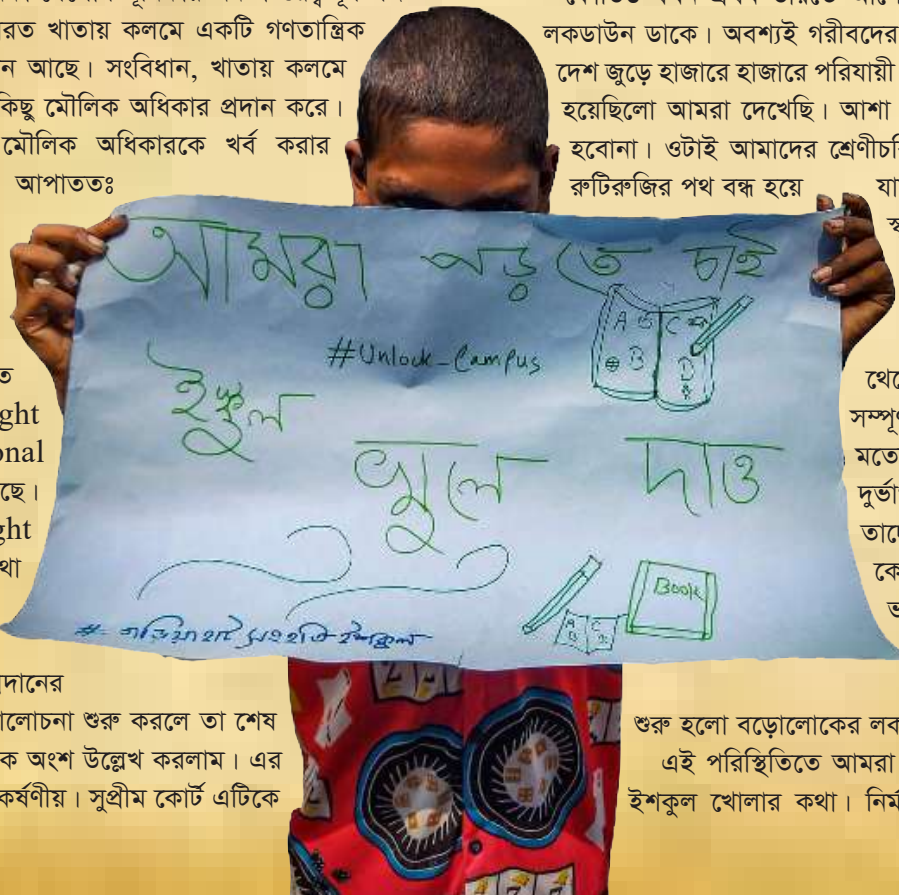 ভারত খাতায় কলমে একটি গণতান্ত্রিক
আছে। সংবিধান, খাতায় কলমে
কিছু মৌলিক অধিকার প্রদান করে।
মৌলিক অধিকারকে খর্ব করার
আপাততঃ
ght
onal
ছে।
ght
থা
আলোচনা শুরু করলে তা শেষ
ক অংশ উল্লেখ করলাম। এর
কর্ষণীয়। সুপ্রীম কোর্ট এটিকে
লকডাউন ডাকে। অবশ্যই গরীবদের
দেশ জুড়ে হাজারে হাজারে পরিযায়ী
হয়েছিলো আমরা দেখেছি। আশা
হবোনা। ওটাই আমাদের
রুটিরুজির পথ বন্ধ হয়ে
মতে
শুরু হলো বড়োলোকের
এই পরিস্থিতিতে আমরা
ইশকুল খোলার কথা।
আমরা পড়তে চাই
#Unlock_Campus
A C
B D
ইস্কুল
খুলে দাও
Book
A C
B D
#গড়িয়াহাট সংহতি ইশকুল